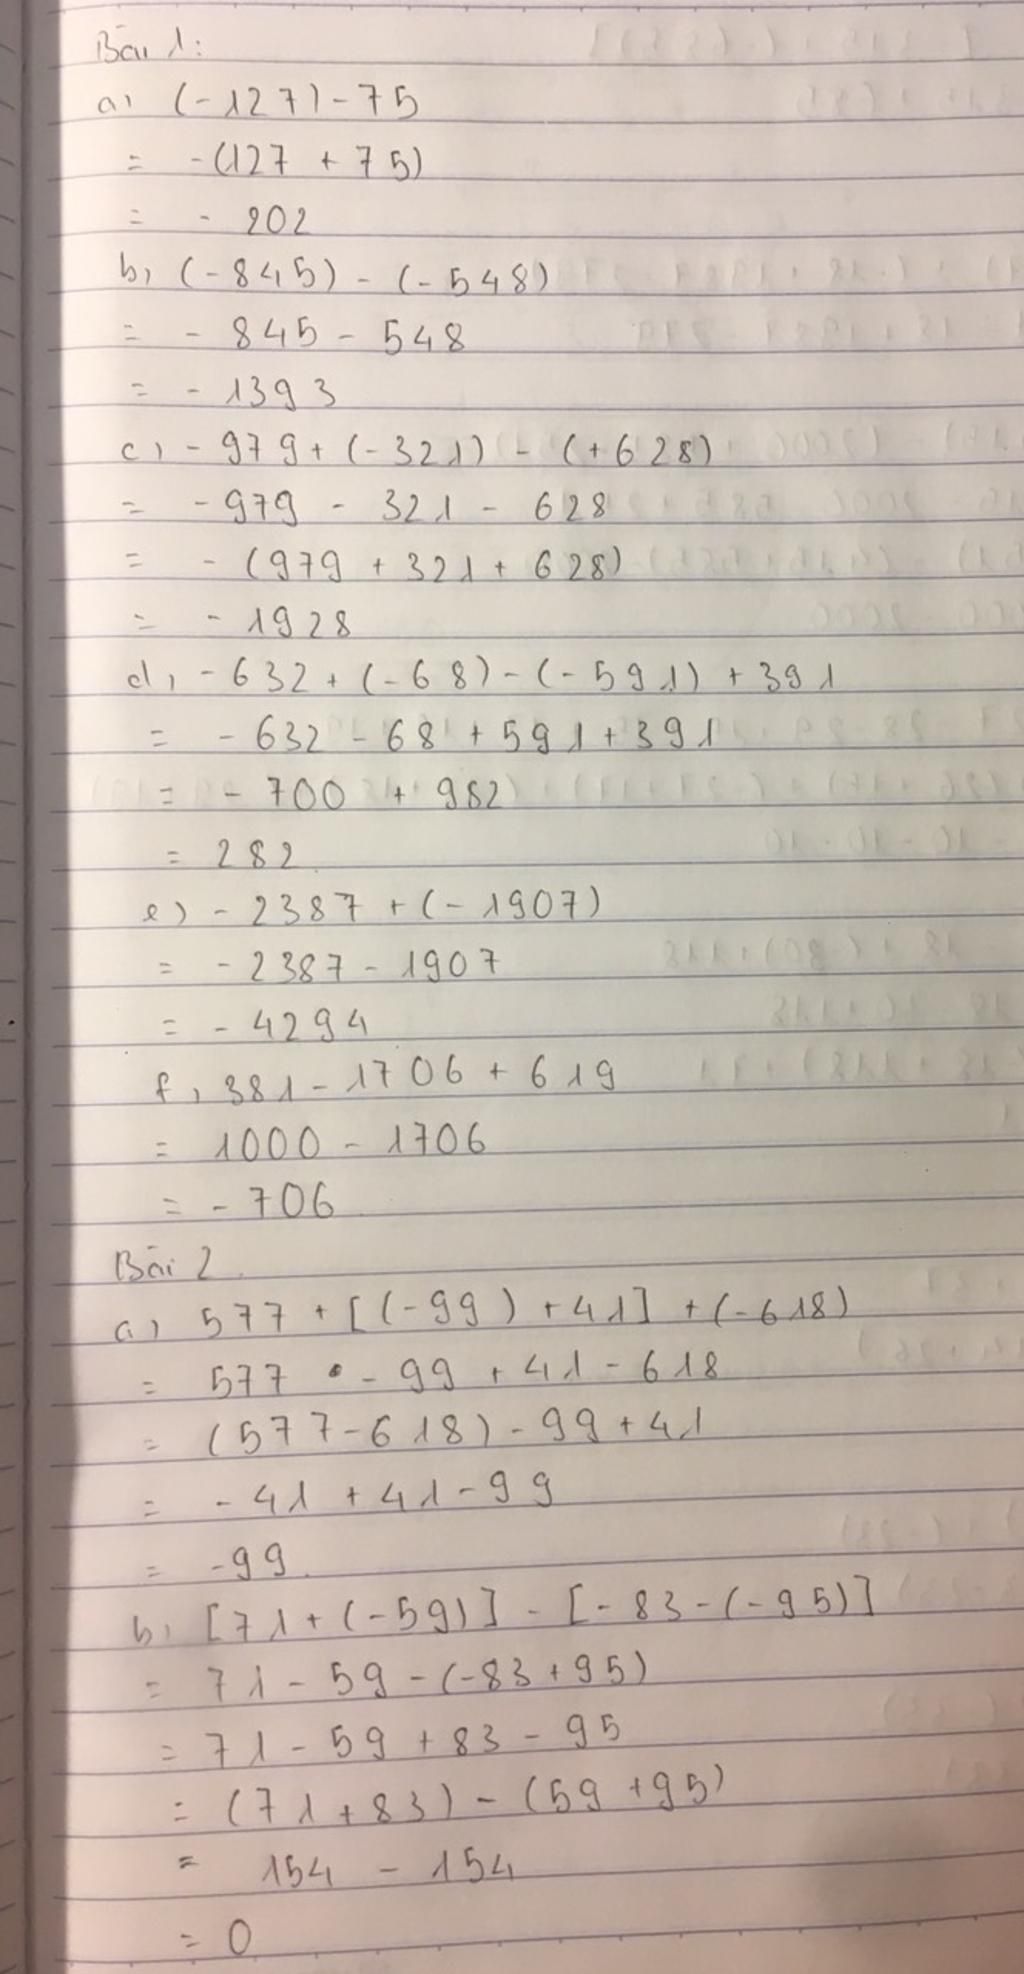 Bài 1:
a, (-127) - 75
= -(127 + 75)
= - 202
b, (-845) - (-548)
= - 845 - 548
= - 1393
c, - 979 + (-321) - (+628)
= - 979 - 321 - 628
= - (979 + 321 + 628)
= - 1928
d, - 632 + (-68) - (-591) + 391
= - 632 - 68 + 591 + 391
= - 700 + 982
= 282
e) - 2387 + (-1907)
= - 2387 - 1907
= - 4294
f, 381 - 1706 + 619
= 1000 - 1706
= - 706
Bài 2
a, 577 + [(-99) + 41] + (-618)
= 577 - 99 + 41 - 618
= (577 - 618) - 99 + 41
= - 41 + 41 - 99
= -99
b, [71 + (-59)] - [-83 - (-95)]
= 71 - 59 - (-83 + 95)
= 71 - 59 + 83 - 95
= (71 + 83) - (59 + 95)
= 154 - 154
= 0